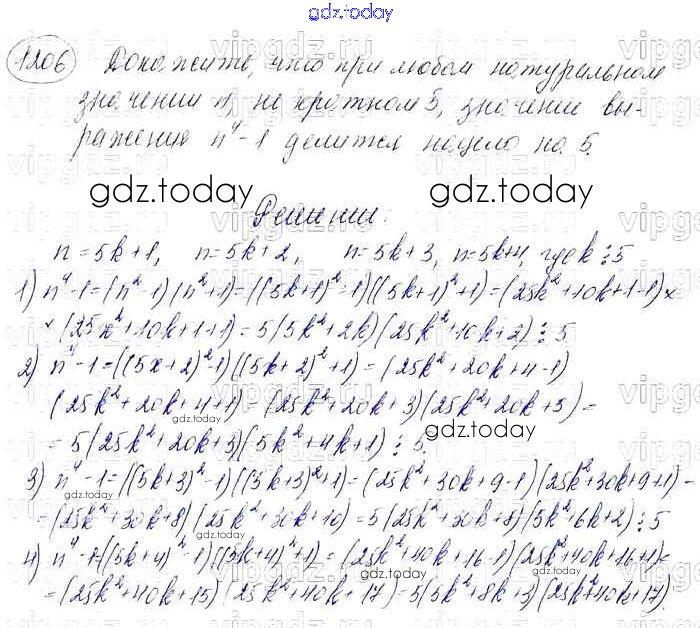 gdz.today
1206 Докажите, что при любом натуральном
значении n, не кратном 5, значение вы-
ражения n⁴-1 делится нацело на 5.
gdz.today gdz.today
Решение:
n=5k+1, n=5k+2, n=5k+3, n=5k+4, где k⋮5
1) n⁴-1=(n²-1)(n²+1)=((5k+1)²-1)((5k+1)²+1)=(25k²+10k+1-1)×
×(25x²+10k+1+1)=5(5k²+2k)(25k²+10k+2)⋮5
2) n⁴-1=((5x+2)²-1)((5k+2)²+1)=(25k²+20k+4-1)
(25k²+20k+4+1)=(25k²+20k+3)(25k²+20k+5)=
gdz.today gdz.today
=5(25k²+20k+3)(5k²+4k+1)⋮5.
3) n⁴-1=((5k+3)²-1)((5k+3)²+1)=(25k²+30k+9-1)(25k²+30k+9+1)-
gdz.today
=(25k²+30k+8)(25k²+30k+10)=5(25k²+30k+8)(5k²+6k+2)⋮5
4) n⁴-1=((5k+4)²-1)((5k+4)²+1)=(25k²+40k+16-1)(25k²+40k+16+1)=
gdz.today
=(25k²+40k+15)(25k²+40k+17)=5(5k²+8k+3)(25k²+40k+17).